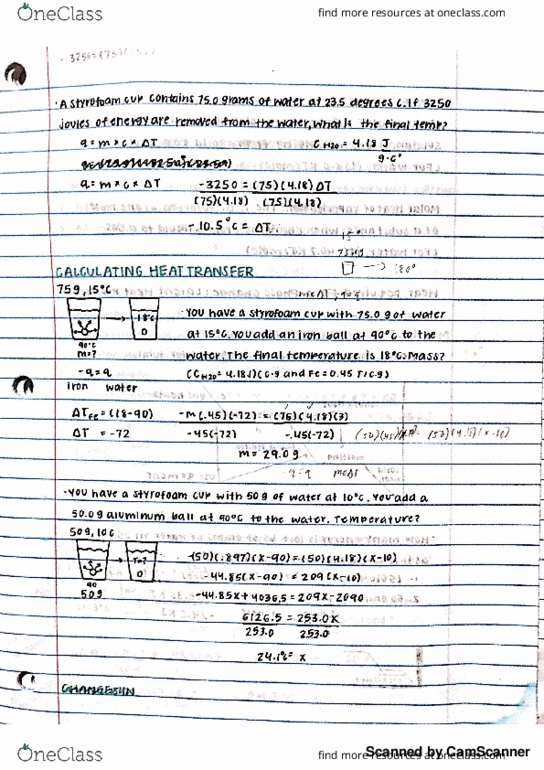 OneClass
find more resources at oneclass.com
- 3250 = (75)(
· A styrofoam cup contains 75.0 grams of water at 23.5 degrees C. If 3250
joules of energy are removed from the water, what is the final temp?
q = m × c × ΔT
C H2O = 4.18 J
g·C°
q = m × c × ΔT
-3250 = (75)(4.18) ΔT
(75)(4.18) (75)(4.18)
- 10.5°C = ΔT
18°
CALCULATING HEAT TRANSFER
75g, 15°C
18°C
90°C
m=?
· You have a styrofoam cup with 75.0 g of water
at 15°C. You add an iron ball at 90°C to the
water. The final temperature is 18°C. Mass?
(C H2O = 4.18 J/(C·g and Fe = 0.45 J/C·g)
-q = q
iron water
ΔT Fe = (18-90)
-m(.45)(-72) = (75)(4.18)(3)
ΔT = -72
-.45(-72) -.45(-72)
m = 29.0 g
· You have a styrofoam cup with 50 g of water at 10°C. You add a
50.0g aluminum ball at 90°C to the water. Temperature?
50g, 10C
T=?
90
50g
-(50)(.897)(x-90) = (50)(4.18)(x-10)
-44.85(x-90) = 209(x-10)
-44.85x + 4036.5 = 209x - 2090
6126.5 = 253.0x
253.0 253.0
24.1°C = x
OneClass
find more resources at oneclass.com
Scanned by CamScanner